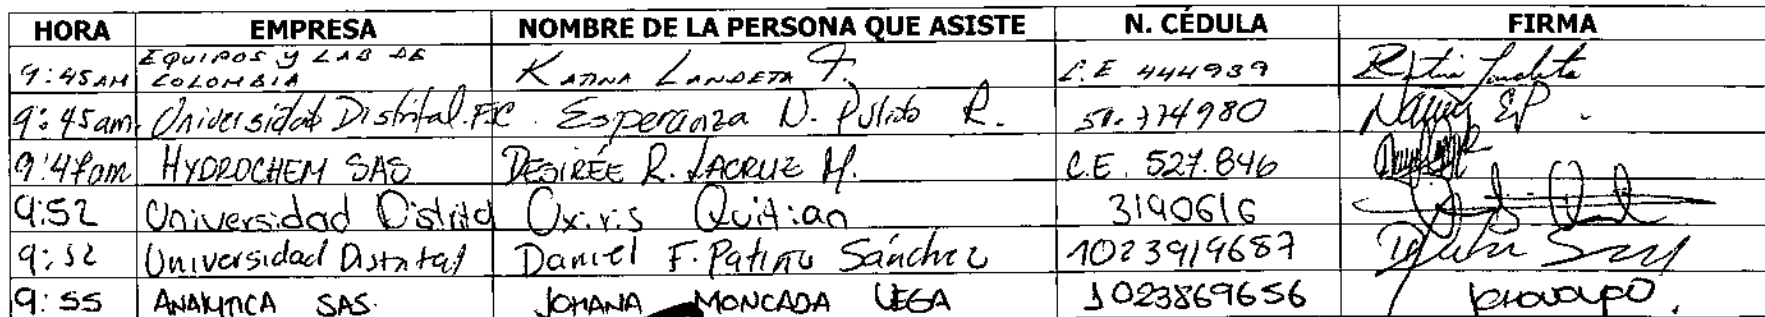 HORA EMPRESA NOMBRE DE LA PERSONA QUE ASISTE N. CÉDULA FIRMA
9:45AM EQUIPOS Y LAB DE COLOMBIA KATINA LANDETA F. C.E 444939 Katia Landeta
9:45am. Universidad Distrital.F.C. Esperanza N. Pulido R. 51.774980 Nancy E.P.
9:47am HYDROCHEM SAS DESIRÉE R. LACRUZ M. C.E. 527.846
9:52 Universidad Distrital Oxiris Quitian 3190616
9:52 Universidad Distrital Daniel F. Patiño Sánchez 1023919687
9:55 ANALYTICA SAS. JOHANA MONCADA VEGA 1023869656